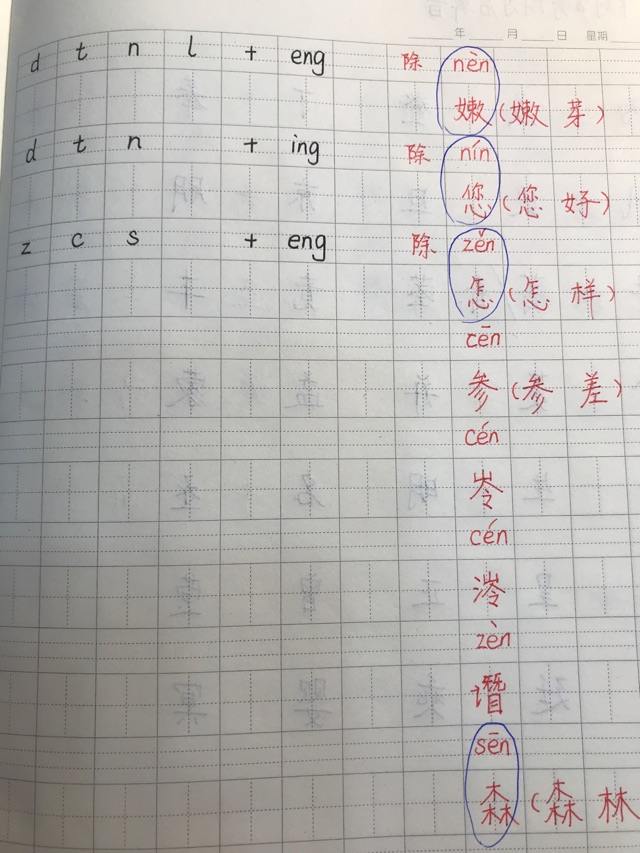 年 月 日 星期
d t n l + eng 除 nèn
嫩 (嫩 芽)
d t n + ing 除 nín
您 (您 好)
z c s + eng 除 zěn
怎 (怎 样)
cēn
参 (参 差)
cén
岑
cén
涔
zèn
谮
sēn
森 (森 林